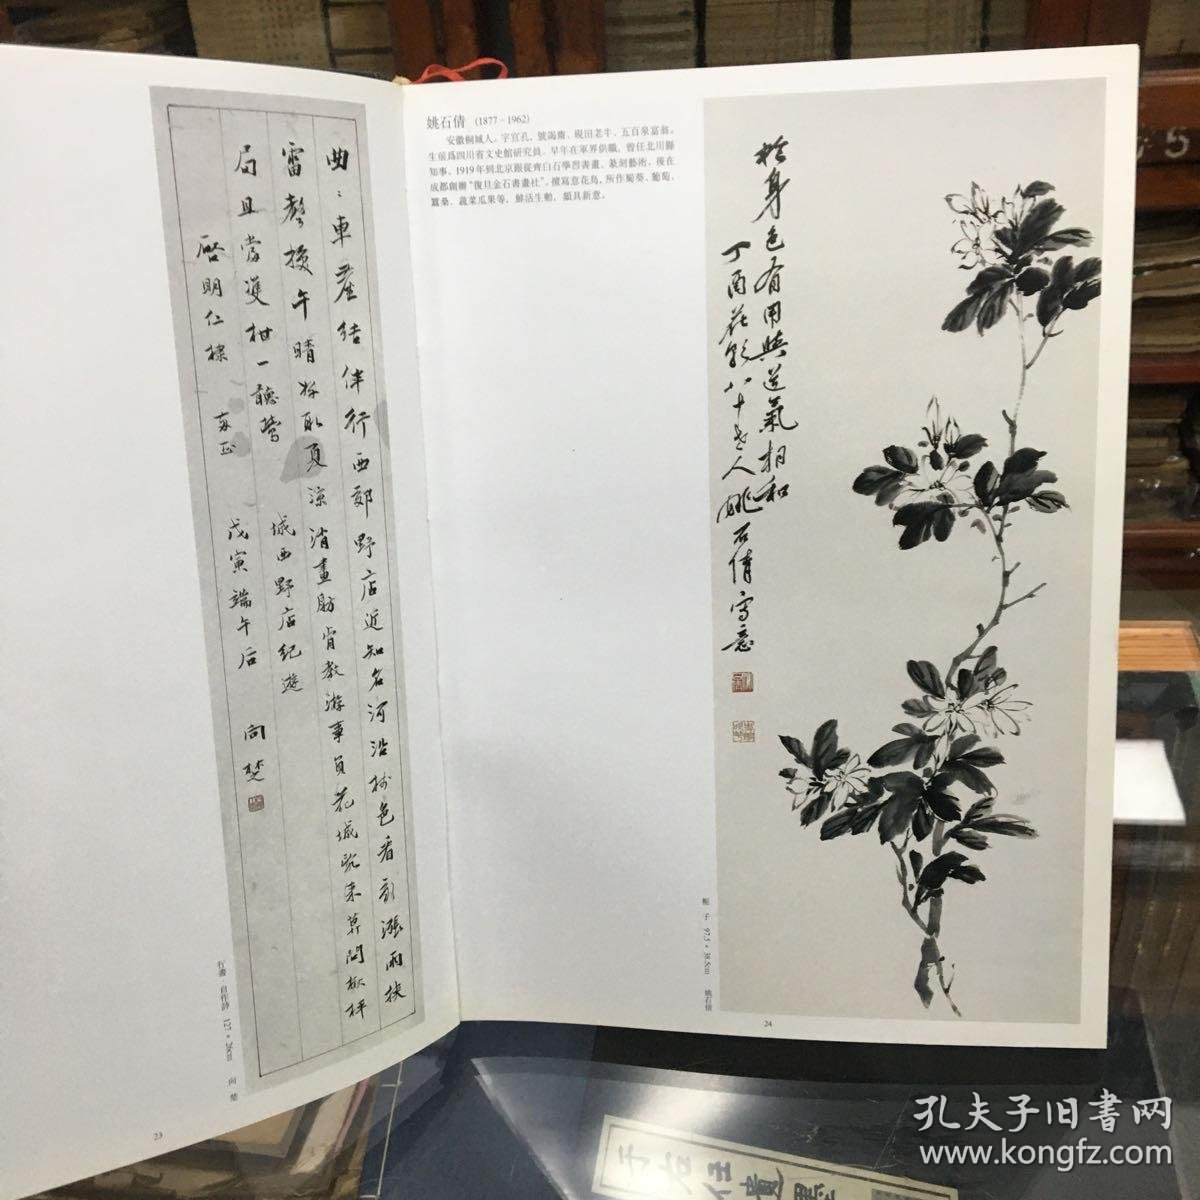 曲〻車塵結伴行西郊野店近知名河沿樹色看新漲雨挾
雷聲換午晴將取夏涼消畫舫肯教游事負花城晚來莫問楸枰
局且當雙柑一聽鶯
城西野店紀遊
啓明仁棣
哂正
戊寅端午后
向楚
行書 自作詩 127×26cm 向楚
23
姚石倩 (1877-1962)
安徽桐城人。字宜孔，號渴齋、硯田老牛、五百泉富翁。
生前爲四川省文史館研究員。早年在軍界供職，曾任北川縣
知事。1919年到北京跟從齊白石學習書畫、篆刻藝術。後在
成都創辦“復旦金石書畫社”。擅寫意花鳥，所作蜀葵、葡萄、
蠶桑、蔬菜瓜果等，鮮活生動，頗具新意。
於身色有用與道氣相和
丁酉花朝八十老人姚石倩寫意
梔子 97.5×38.5cm 姚石倩
24
于右任遺墨
孔夫子旧书网
www.kongfz.com